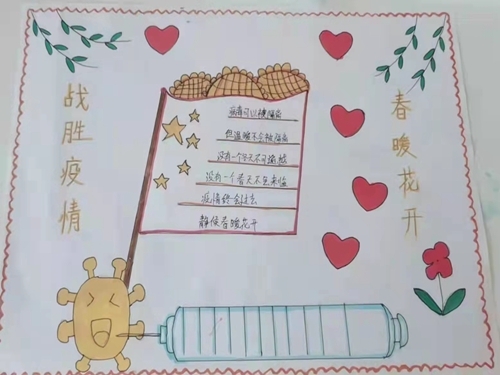 战胜疫情
病毒可以被隔离
但温暖不会被隔离
没有一个冬天不可逾越
没有一个春天不会来临
疫情终会过去
静候春暖花开
春暖花开